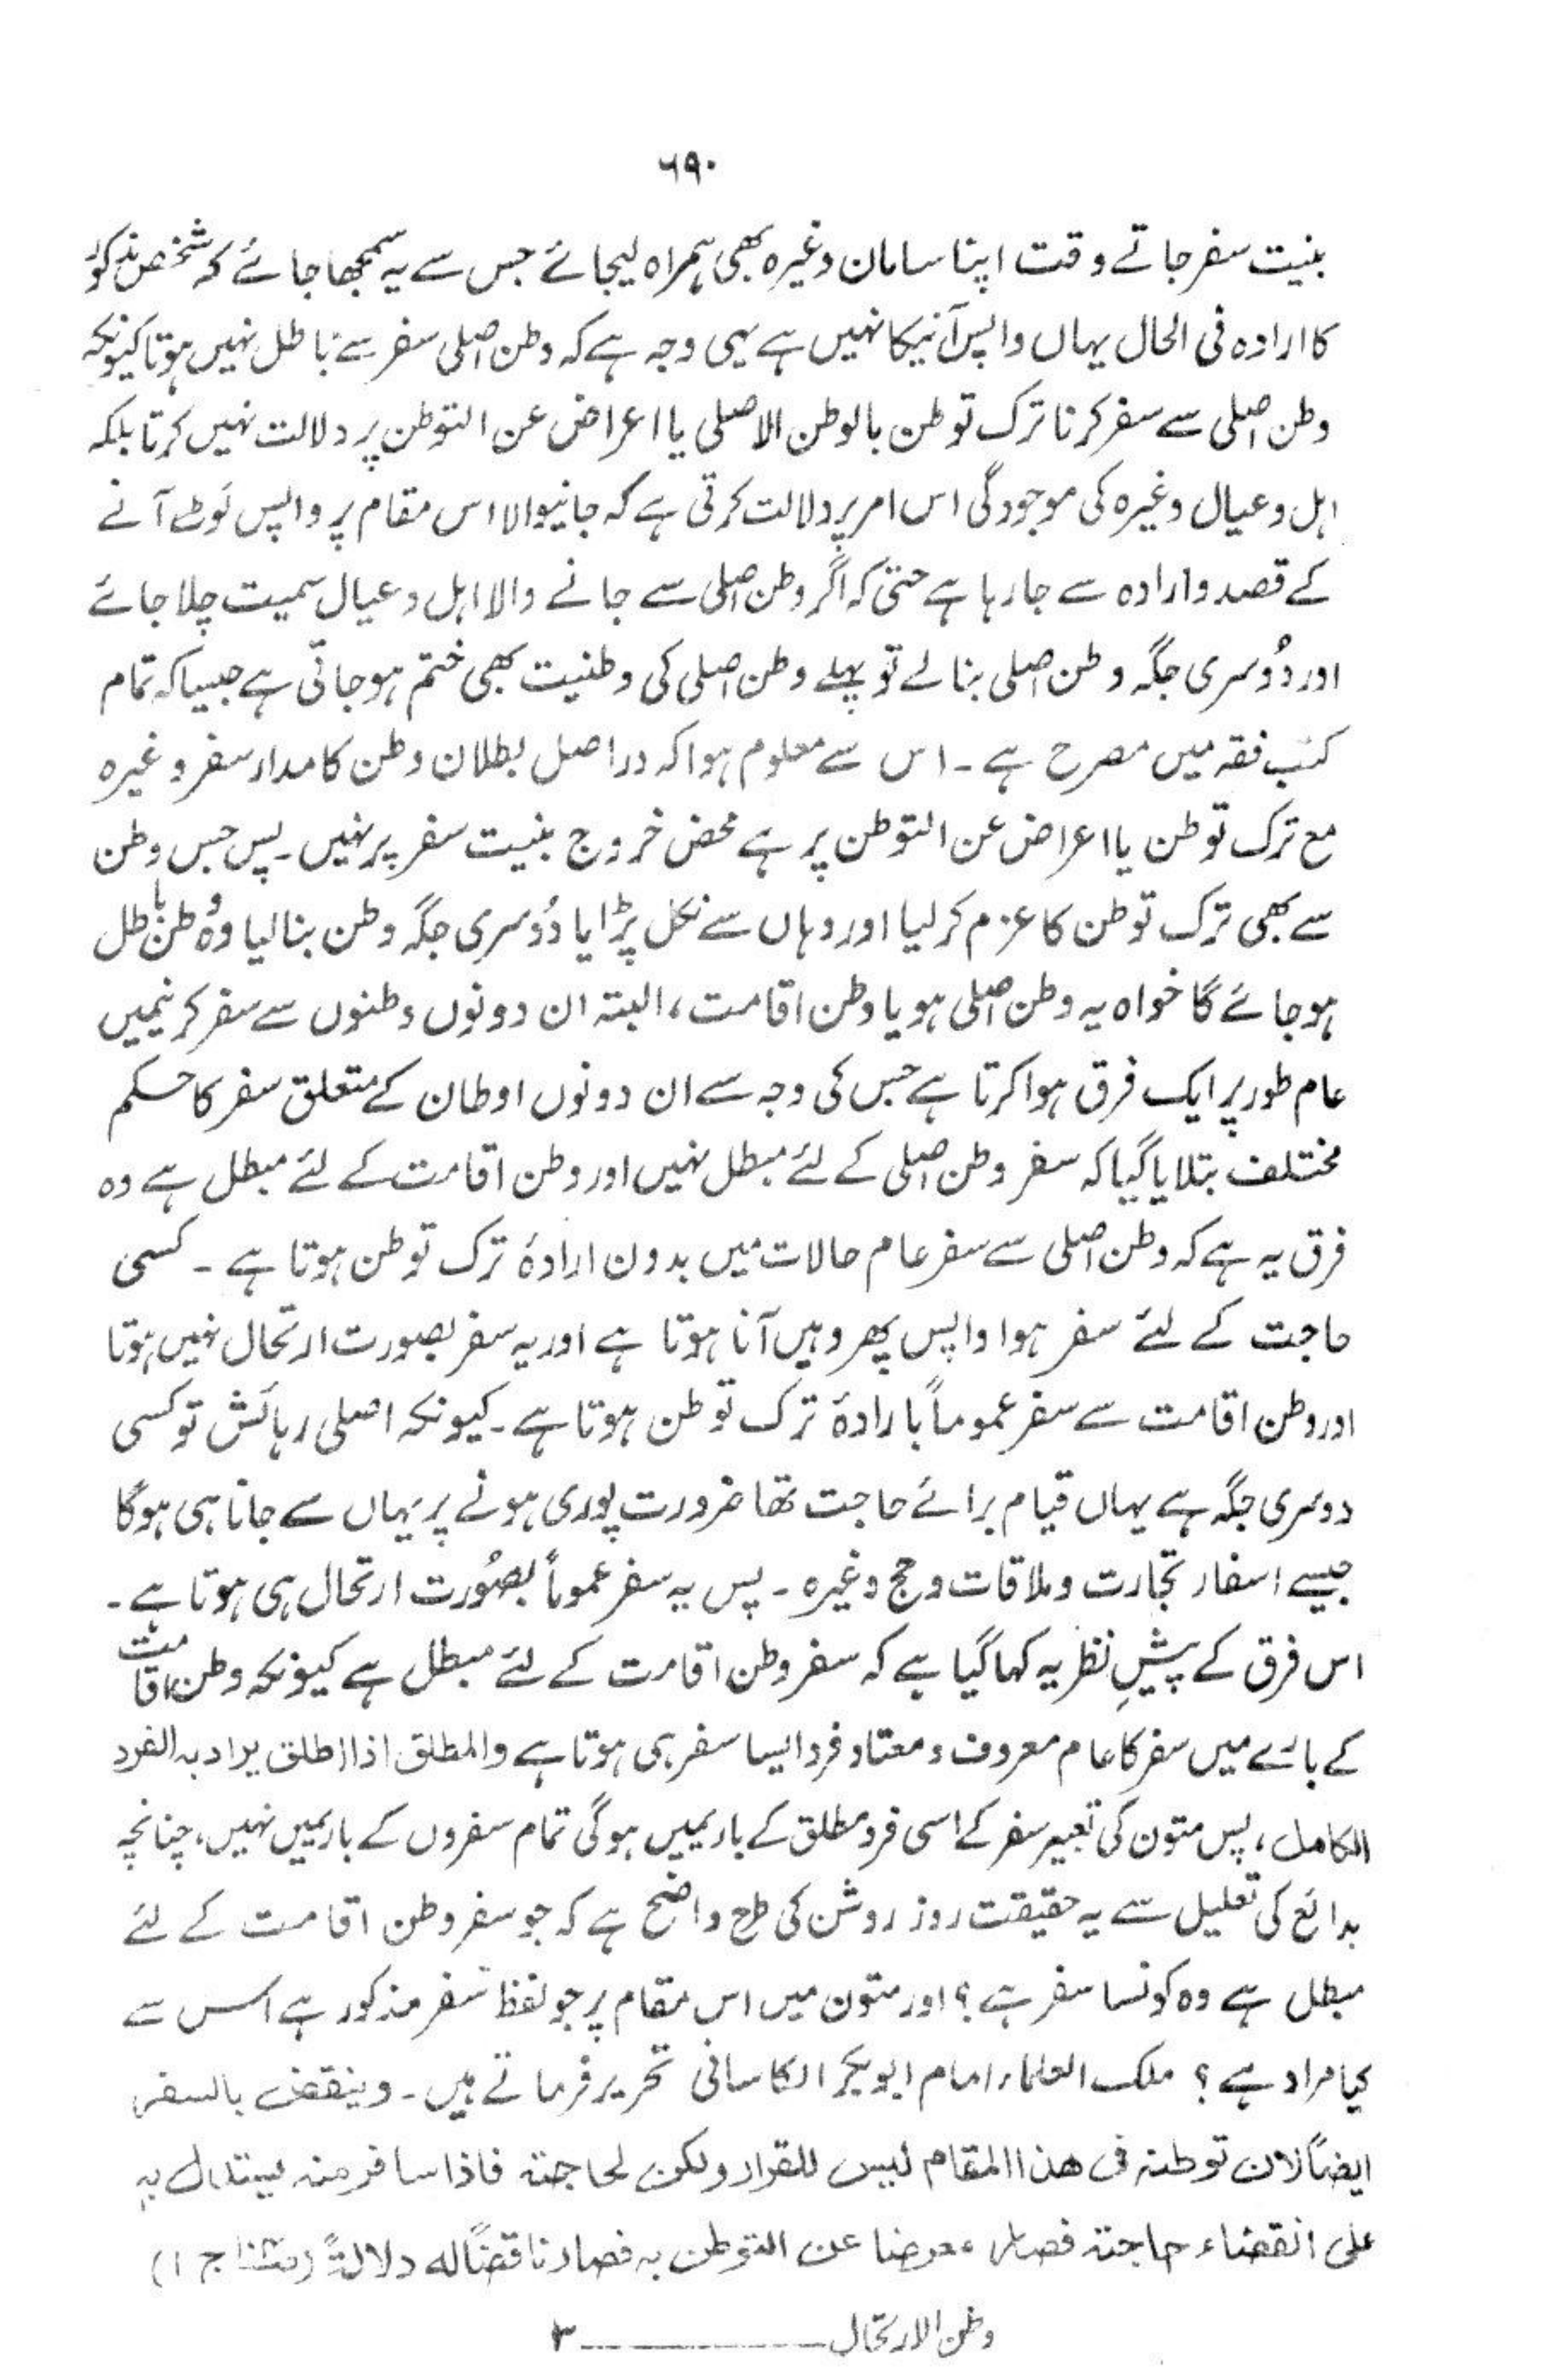 ۶۹۰
بنیت سفر جاتے وقت اپنا سامان وغیرہ بھی ہمراہ لیجائے جس سے یہ سمجھا جائے کہ شخص مذکور
کا ارادہ فی الحال یہاں واپس آنیکا نہیں ہے یہی وجہ ہے کہ وطن اصلی سفر سے باطل نہیں ہوتا کیونکہ
وطن اصلی سے سفر کرنا ترک توطن بالوطن الاصلی یا اعراض عن التوطن پر دلالت نہیں کرتا بلکہ
اہل و عیال وغیرہ کی موجودگی اس امر پر دلالت کرتی ہے کہ جانیوالا اس مقام پر واپس لوٹ آنے
کے قصد و ارادہ سے جا رہا ہے حتیٰ کہ اگر وطن اصلی سے جانے والا اہل و عیال سمیت چلا جائے
اور دُوسری جگہ وطن اصلی بنالے تو پہلے وطن اصلی کی وطنیت بھی ختم ہو جاتی ہے جیسا کہ تمام
کتب فقہ میں مصرح ہے ۔ اس سے معلوم ہوا کہ دراصل بطلان وطن کا مدار سفر وغیرہ
مع ترک توطن یا اعراض عن التوطن پر ہے محض خروج بنیت سفر پر نہیں ۔ پس جس وطن
سے بھی ترک توطن کا عزم کرلیا اور وہاں سے نکل پڑا یا دُوسری جگہ وطن بنالیا وُہ وطن باطل
ہو جائے گا خواہ یہ وطن اصلی ہو یا وطن اقامت ، البتہ ان دونوں وطنوں سے سفر کرنیمیں
عام طور پر ایک فرق ہوا کرتا ہے جس کی وجہ سے ان دونوں اوطان کے متعلق سفر کا حکم
مختلف بتلایا گیا کہ سفر وطن اصلی کے لئے مبطل نہیں اور وطن اقامت کے لئے مبطل ہے وہ
فرق یہ ہے کہ وطن اصلی سے سفر عام حالات میں بدون ارادۂ ترک توطن ہوتا ہے ۔ کسی
حاجت کے لئے سفر ہوا واپس پھر وہیں آنا ہوتا ہے اور یہ سفر بصورت ارتحال نہیں ہوتا
اور وطن اقامت سے سفر عموماً بارادۂ ترک توطن ہوتا ہے ۔ کیونکہ اصلی رہائش تو کسی
دوسری جگہ ہے یہاں قیام برائے حاجت تھا ضرورت پوری ہونے پر یہاں سے جانا ہی ہوگا
جیسے اسفار تجارت و ملاقات و حج وغیرہ ۔ پس یہ سفر عموماً بصُورت ارتحال ہی ہوتا ہے ۔
اس فرق کے پیشِ نظر یہ کہا گیا ہے کہ سفر وطن اقامت کے لئے مبطل ہے کیونکہ وطن اقامت
کے بارے میں سفر کا عام معروف و معتاد فرد ایسا سفر ہی ہوتا ہے والمطلق اذا اطلق یراد بہ الفرد
الکامل ، پس متون کی تعبیر سفر کے اسی فرد مطلق کے باریمیں ہوگی تمام سفروں کے باریمیں نہیں ، چنانچہ
بدائع کی تعلیل سے یہ حقیقت روز روشن کی طرح واضح ہے کہ جو سفر وطن اقامت کے لئے
مبطل ہے وہ کونسا سفر ہے ؟ اور متون میں اس مقام پر جو لفظ سفر مذکور ہے اس سے
کیا مراد ہے ؟ ملک العلماء امام ابو بکر الکاسانی تحریر فرماتے ہیں ۔ وینقض بالسفر
ایضاً لان توطنہ فی ھذا المقام لیس للقرار ولکن لحاجۃ فاذا سافر منہ یستدل بہ
علی انقضاء حاجتہ فصار معرضا عن التوطن بہ فصار ناقضاً لہ دلالۃً ( ج ۱)
وطن الارتحال ــــــــــــ ۳